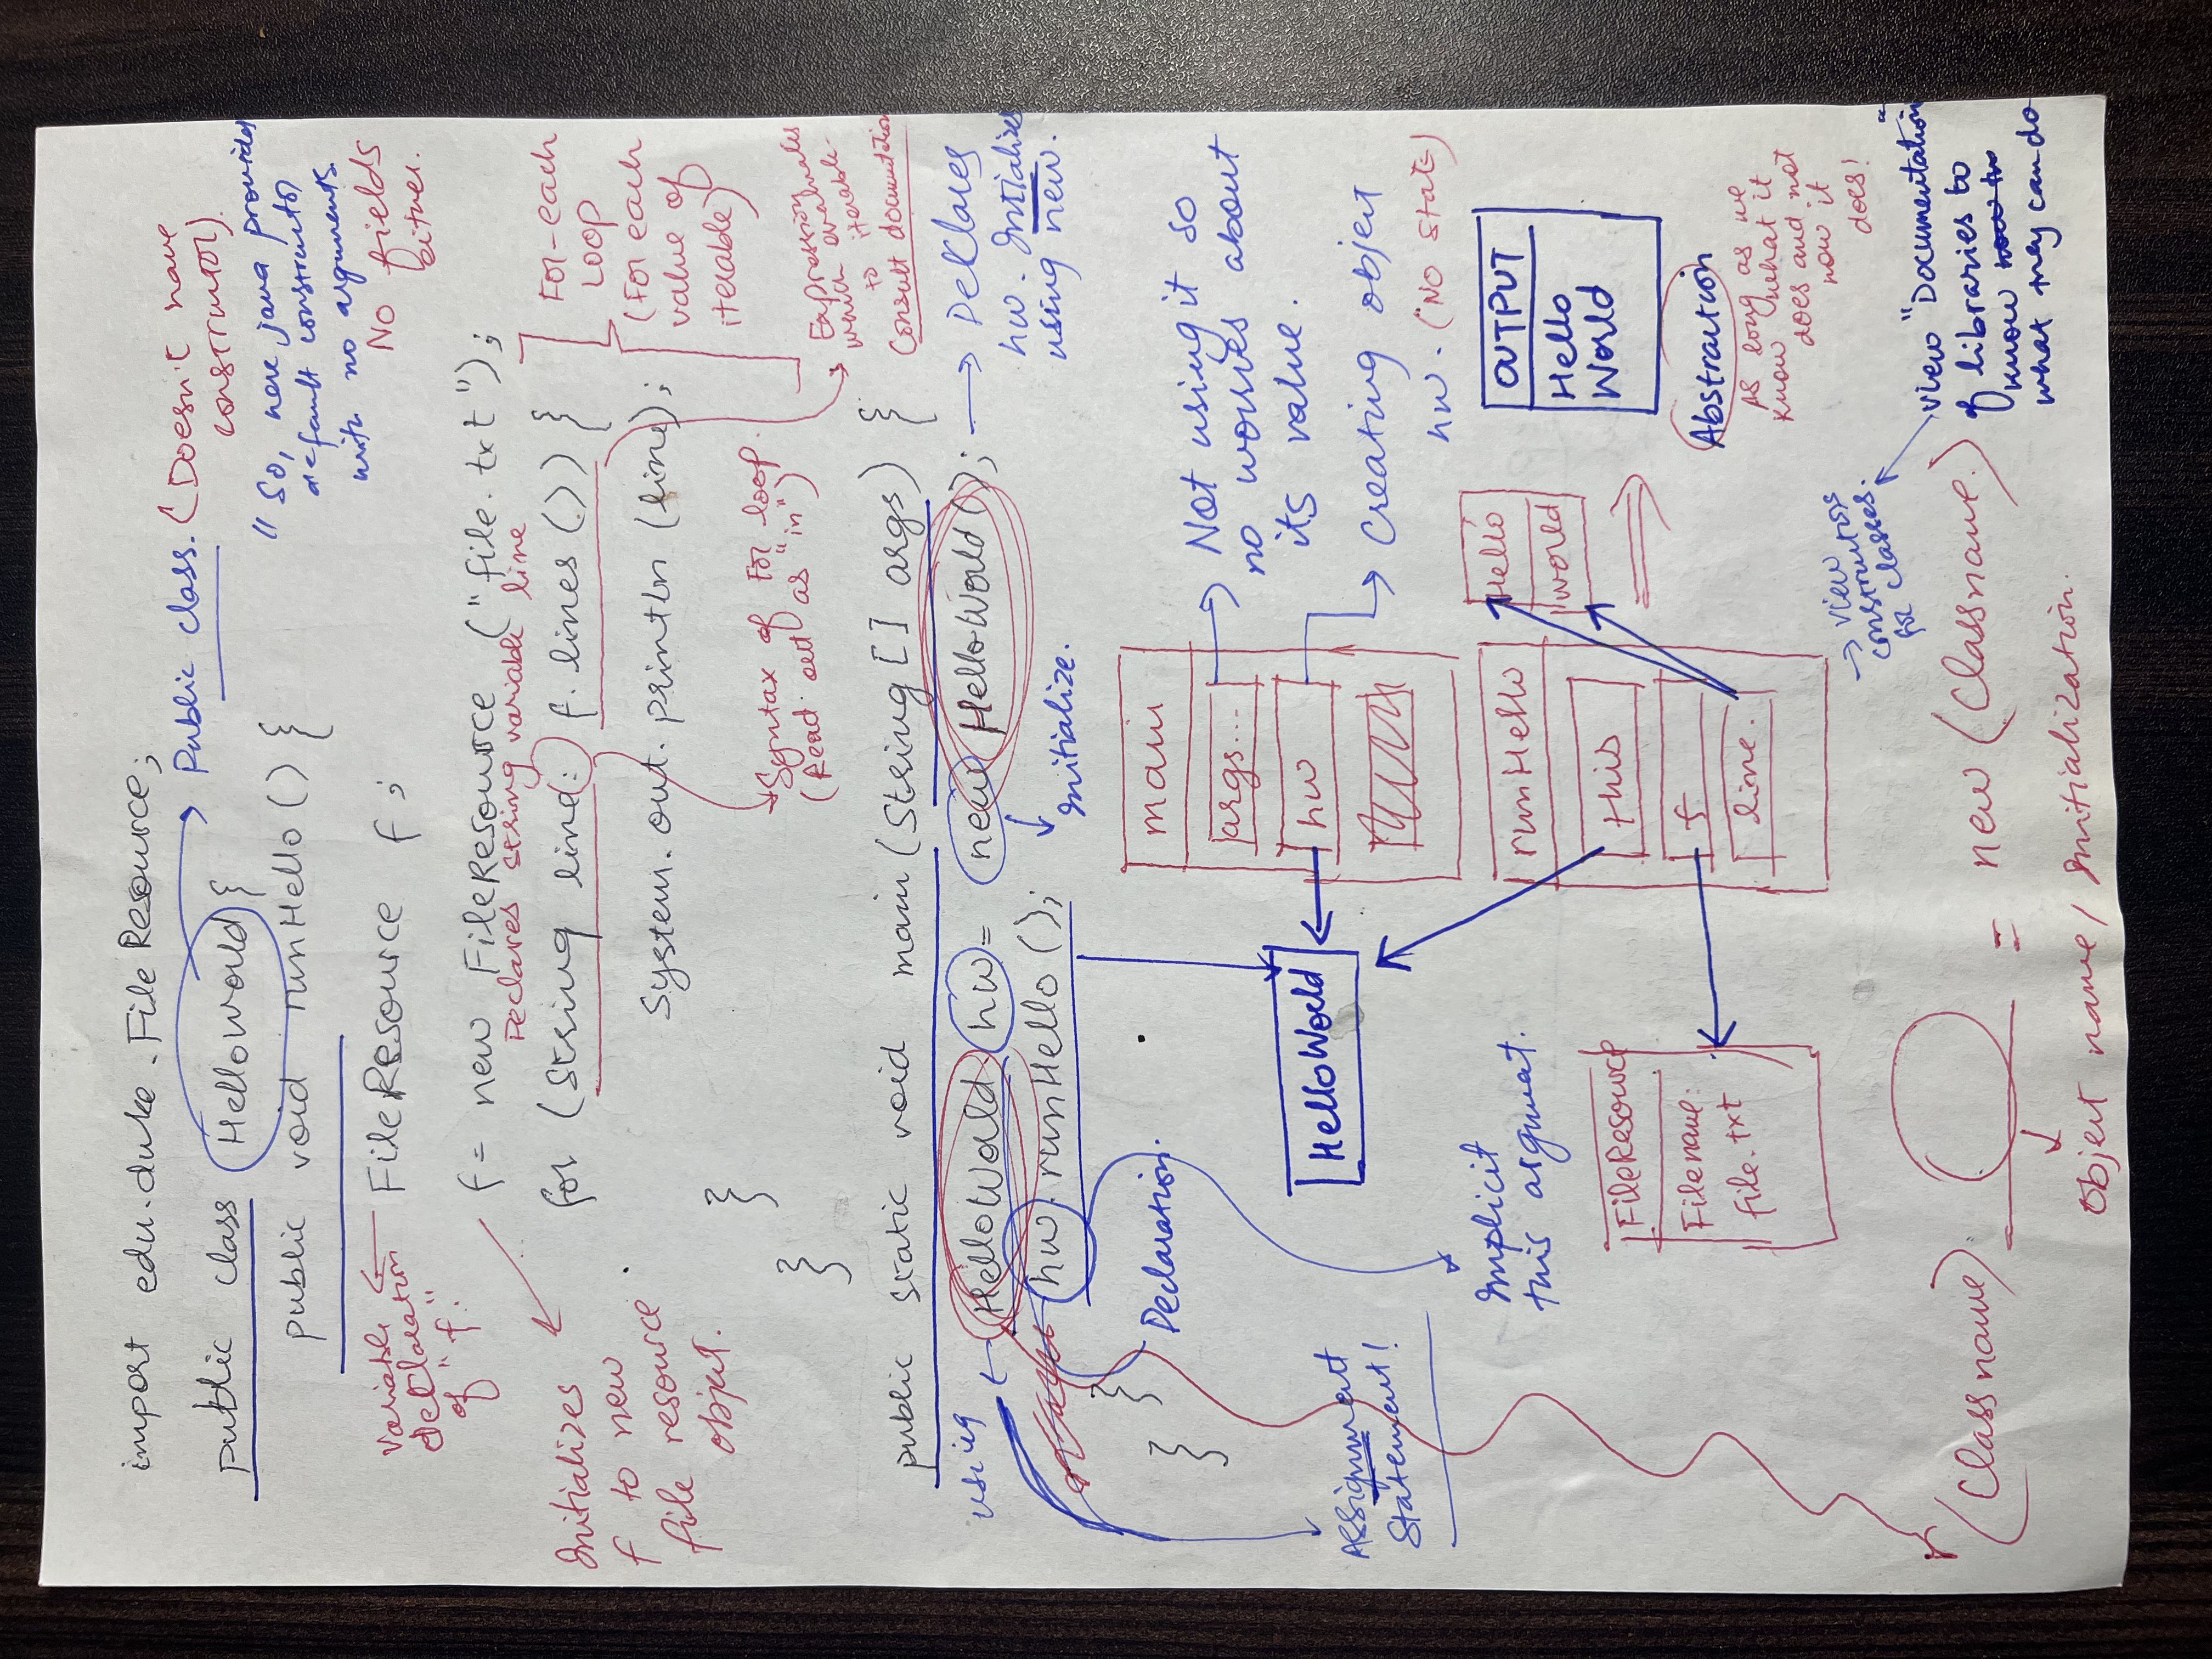 import edu.duke.FileResource;
public class HelloWorld {
→ Public class. (Doesn't have
constructor).
"So, here java provides
default constructor
with no arguments
No fields
either.
public void runHello () {
FileResource f ;
Variable
declaration
of "f".
f = new FileResource ("file.txt");
Declares string variable line
for (string line : f. lines ()) {
For-each
Loop
(For each
value of
iterable)
System. out. println (line);
}
}
Initializes
f to new
file resource
object.
Syntax of For loop.
(Read out as "in")
Expression
iterable
to
Consult documentation
public static void main (String [] args) {
HelloWorld hw = new HelloWorld ();
→ Declares
hw. Initializes
using new.
using
hw. runHello ();
Initialize.
}
}
Declaration.
Assignment
Statement!
Implicit
this argument.
main
args...
hw
→ Not using it so
no worries about
its value.
→ Creating object
hw. ("No state)
HelloWorld
runHello
this
f
line.
Hello
World
OUTPUT
Hello
World
FileResource
Filename:
file.txt
Abstraction
As long as we
know what it
does and not
how it
does!
→ view
constructors
for classes.
view "Documentation"
of libraries to
know
what they can do
(Classname). = new (Classname.)
Object name / Initialization.